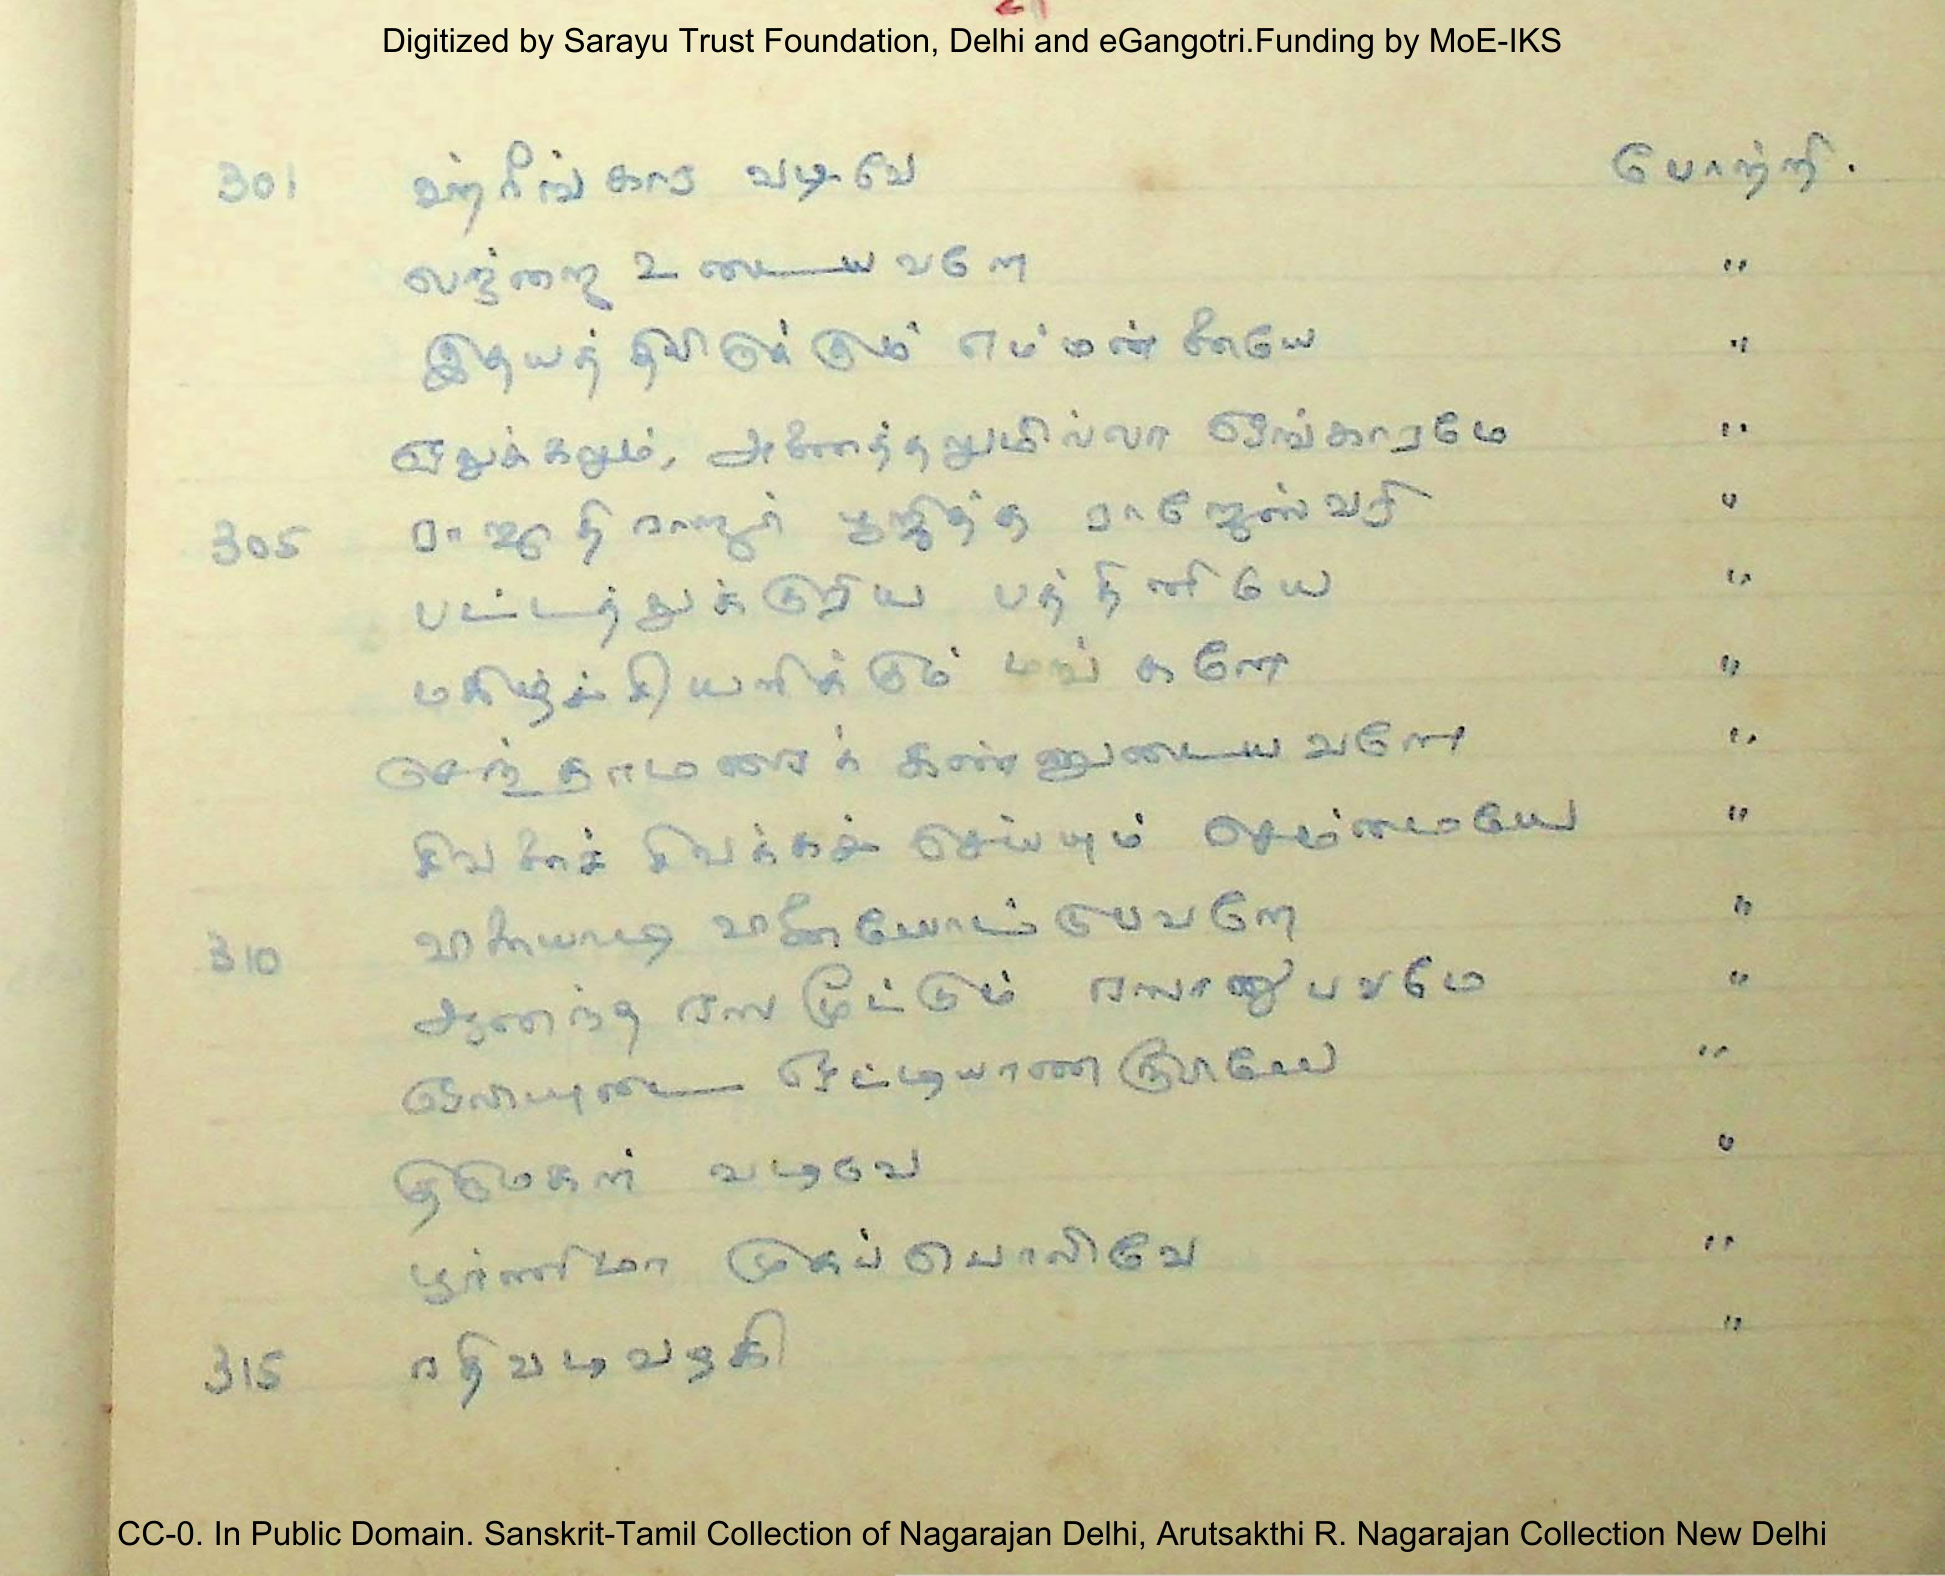 Digitized by Sarayu Trust Foundation, Delhi and eGangotri.Funding by MoE-IKS
301 ஹ்ரீங்கார வடிவே போற்றி.
லஜ்ஜை உடையவளே "
இதயத்திலிருக்கும் எம்மன்னையே "
ஏதுக்கலும், அணைத்தலுமில்லா ஓங்காரமே "
305 ராஜாதிராஜர் பூஜித்த ராஜேஸ்வரி "
பட்டத்துக்குரிய பத்தினியே "
மகிழ்ச்சியளிக்கும் மங்களே "
செந்தாமரைக் கண்ணுடையவளே "
சிவனைச் சிவக்கச் செய்யும் செம்மையே "
310 வினையாடி வினையோட்டுபவளே "
ஆனந்த ரஸமூட்டும் ரஸானுபவமே "
ஒலியுடை ஒட்டியாண இடையே "
திருமகள் வடிவே "
பூர்ணிமா முகப் பொலிவே "
315 ரதிவடிவழகி "
CC-0. In Public Domain. Sanskrit-Tamil Collection of Nagarajan Delhi, Arutsakthi R. Nagarajan Collection New Delhi